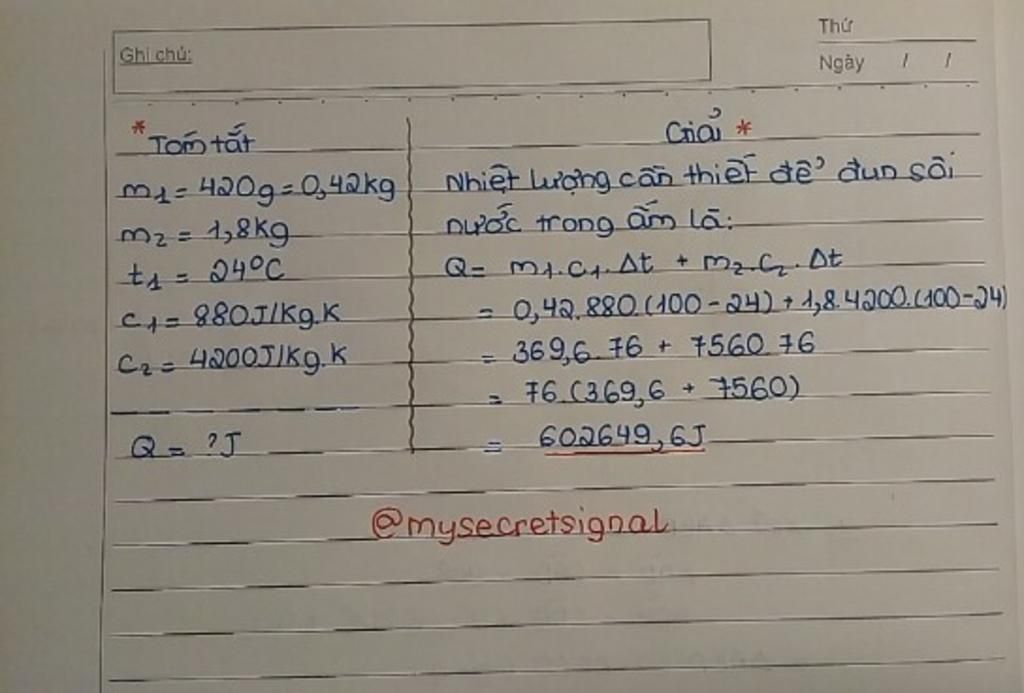 Ghi chú:
Thứ
Ngày / /
* Tóm tắt
m1 = 420g = 0,42kg
m2 = 1,8kg
t1 = 24°C
c1 = 880J/kg.K
c2 = 4200J/kg.K
Q = ?J
Giải *
Nhiệt lượng cần thiết để đun sôi
nước trong ấm là:
Q = m1.c1.Δt + m2.c2.Δt
= 0,42.880.(100-24) + 1,8.4200.(100-24)
= 369,6.76 + 7560.76
= 76.(369,6 + 7560)
= 602649,6J
@mysecretsignal